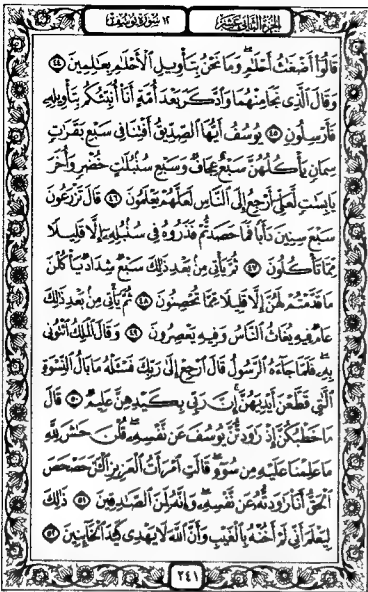 الجزء الثاني عشر
١٢ سورة يوسف
قَالُوٓا۟ أَضْغَٰثُ أَحْلَٰمٍۖ وَمَا نَحْنُ بِتَأْوِيلِ ٱلْأَحْلَٰمِ بِعَٰلِمِينَ ٤٤
وَقَالَ ٱلَّذِى نَجَا مِنْهُمَا وَٱدَّكَرَ بَعْدَ أُمَّةٍ أَنَا۠ أُنَبِّئُكُم بِتَأْوِيلِهِۦ
فَأَرْسِلُونِ ٤٥ يُوسُفُ أَيُّهَا ٱلصِّدِّيقُ أَفْتِنَا فِى سَبْعِ بَقَرَٰتٍ
سِمَانٍ يَأْكُلُهُنَّ سَبْعٌ عِجَافٌ وَسَبْعِ سُنۢبُلَٰتٍ خُضْرٍ وَأُخَرَ
يَابِسَٰتٍ لَّعَلِّىٓ أَرْجِعُ إِلَى ٱلنَّاسِ لَعَلَّهُمْ يَعْلَمُونَ ٤٦ قَالَ تَزْرَعُونَ
سَبْعَ سِنِينَ دَأَبًا فَمَا حَصَدتُّمْ فَذَرُوهُ فِى سُنۢبُلِهِۦٓ إِلَّا قَلِيلًا
مِّمَّا تَأْكُلُونَ ٤٧ ثُمَّ يَأْتِى مِنۢ بَعْدِ ذَٰلِكَ سَبْعٌ شِدَادٌ يَأْكُلْنَ
مَا قَدَّمْتُمْ لَهُنَّ إِلَّا قَلِيلًا مِّمَّا تُحْصِنُونَ ٤٨ ثُمَّ يَأْتِى مِنۢ بَعْدِ ذَٰلِكَ
عَامٌ فِيهِ يُغَاثُ ٱلنَّاسُ وَفِيهِ يَعْصِرُونَ ٤٩ وَقَالَ ٱلْمَلِكُ ٱئْتُونِى
بِهِۦۖ فَلَمَّا جَآءَهُ ٱلرَّسُولُ قَالَ ٱرْجِعْ إِلَىٰ رَبِّكَ فَسْـَٔلْهُ مَا بَالُ ٱلنِّسْوَةِ
ٱلَّٰتِى قَطَّعْنَ أَيْدِيَهُنَّۚ إِنَّ رَبِّى بِكَيْدِهِنَّ عَلِيمٌ ٥٠ قَالَ
مَا خَطْبُكُنَّ إِذْ رَٰوَدتُّنَّ يُوسُفَ عَن نَّفْسِهِۦۚ قُلْنَ حَٰشَ لِلَّهِ
مَا عَلِمْنَا عَلَيْهِ مِن سُوٓءٍۚ قَالَتِ ٱمْرَأَتُ ٱلْعَزِيزِ ٱلْـَٰٔنَ حَصْحَصَ
ٱلْحَقُّ أَنَا۠ رَٰوَدتُّهُۥ عَن نَّفْسِهِۦ وَإِنَّهُۥ لَمِنَ ٱلصَّٰدِقِينَ ٥١ ذَٰلِكَ
لِيَعْلَمَ أَنِّى لَمْ أَخُنْهُ بِٱلْغَيْبِ وَأَنَّ ٱللَّهَ لَا يَهْدِى كَيْدَ ٱلْخَآئِنِينَ ٥٢
٢٤١